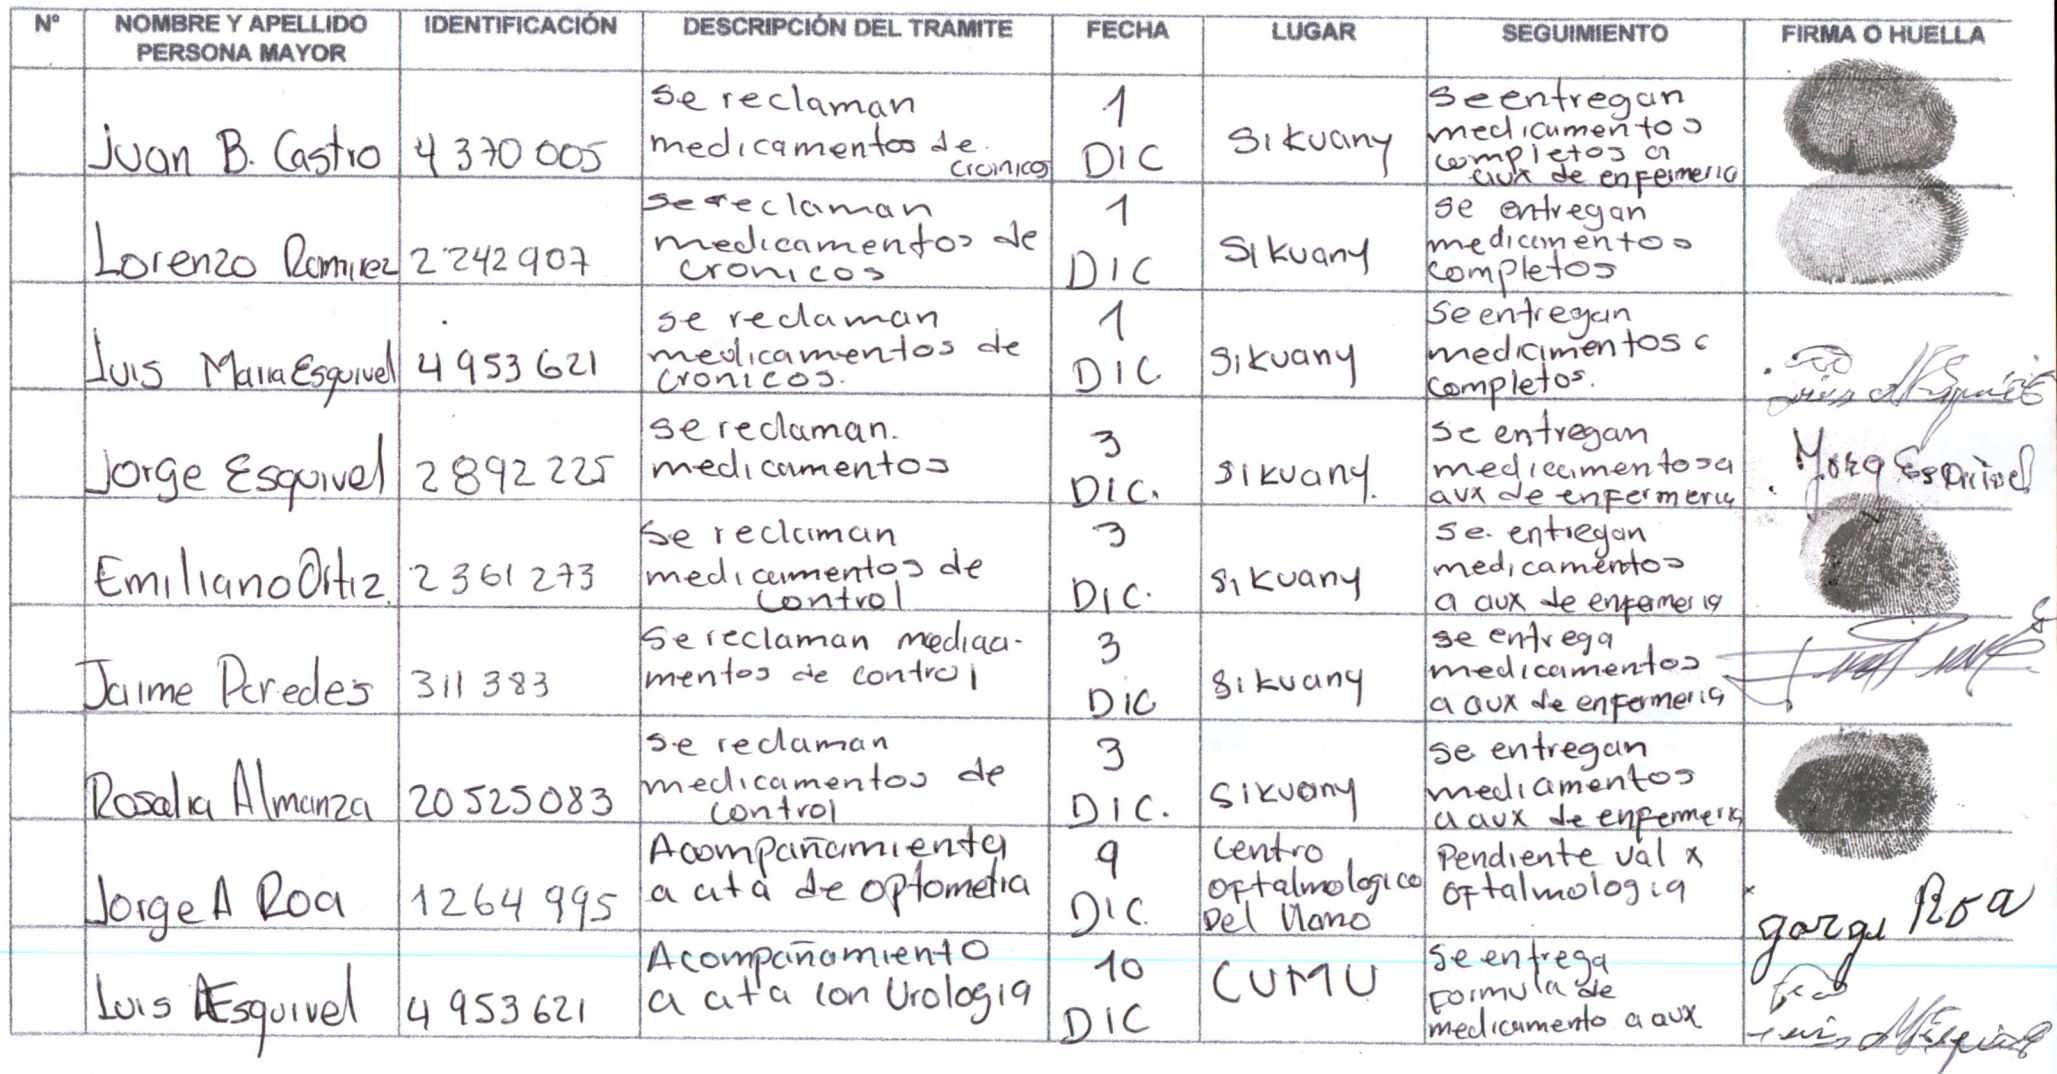 N° NOMBRE Y APELLIDO PERSONA MAYOR IDENTIFICACIÓN DESCRIPCIÓN DEL TRAMITE FECHA LUGAR SEGUIMIENTO FIRMA O HUELLA
Juan B. Castro 4370005 se reclaman medicamentos de cronicos 1 DIC Sikuany se entregan medicamentos completos a aux de enfermeria
Lorenzo Ramirez 2242907 se reclaman medicamentos de cronicos 1 DIC Sikuany se entregan medicamentos completos
Luis Maria Esquivel 4953621 se reclaman medicamentos de cronicos. 1 DIC. Sikuany se entregan medicamentos c completos.
Jorge Esquivel 2892225 se reclaman. medicamentos 3 DIC. Sikuany. se entregan medicamentos a aux de enfermeria Jorg Esquivel
Emiliano Ortiz. 2361273 se reclaman medicamentos de control 3 DIC. Sikuany se. entregan medicamentos a aux de enfermeria
Jaime Paredes 311383 se reclaman medica- mentos de control 3 DIC Sikuany se entrega medicamentos a aux de enfermeria
Rosalia Almanza 20525083 se reclaman medicamentos de control 3 DIC. Sikuany se entregan medicamentos a aux de enfermeria
Jorge A Roa 1264995 Acompañamiento a cita de optometria 9 DIC. Centro oftalmologico Del Llano Pendiente val x oftalmologia Jorge Roa
Luis Esquivel 4953621 Acompañamiento a cita con Urologia 10 DIC CUMU Se entrega formula de medicamento a aux